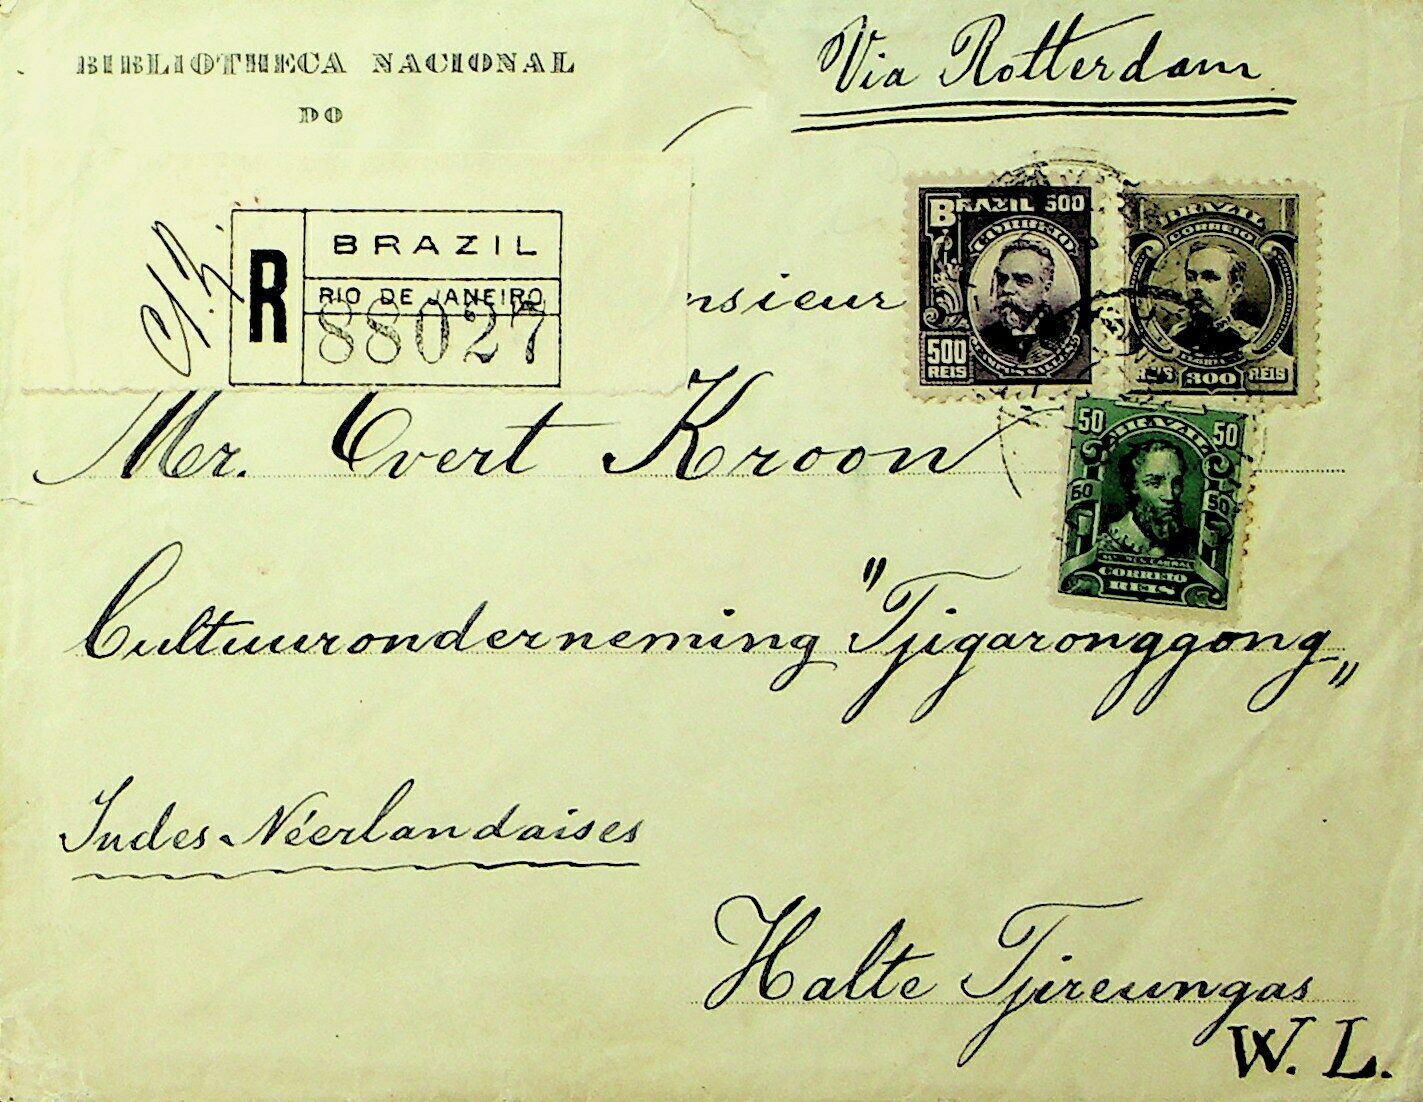 BIBLIOTHECA NACIONAL
DO
Via Rotterdam
R
BRAZIL
RIO DE JANEIRO
88027
nsieur
BRAZIL 500
CORREIO
500
REIS
BRAZIL
CORREIO
REIS 300 REIS
Mr. Evert Kroon
50 BRAZIL 50
50 50
CORREIO
REIS
Cultuuronderneming "Tjigaronggong„
Indes-Néerlandaises
Halte Tjireungas
W. L.